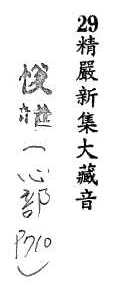 29精嚴新集大藏音
(心部P710)